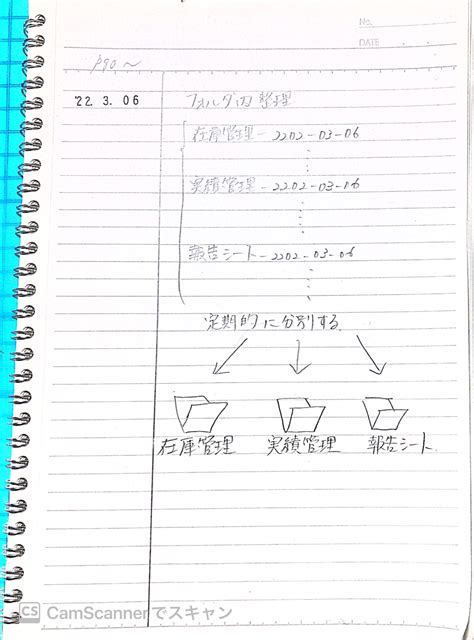 No.
DATE
P90〜
'22. 3. 06
フォルダ内整理
在庫管理-2202-03-06
実績管理-2202-03-06
報告シート-2202-03-06
定期的に分別する
在庫管理 実績管理 報告シート
CS CamScannerでスキャン